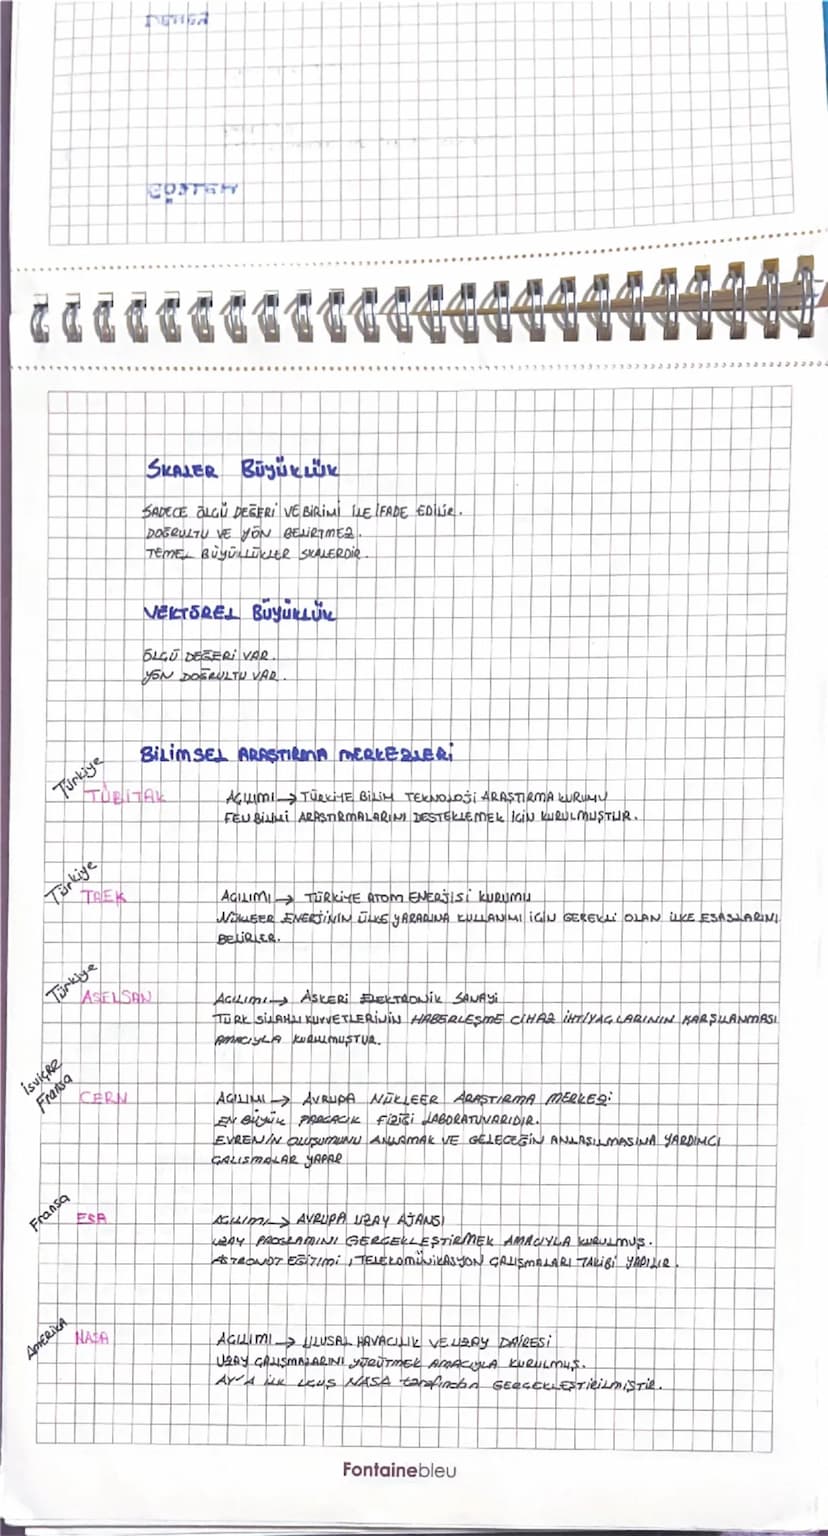 SKALER BÜYÜKLÜK
SADECE ÖLÇÜ DEĞERİ VE BİRİMİ İLE İFADE EDİLİR.
DOĞRULTU VE YÖN BELİRTMEZ.
TEMEL BÜYÜLLÜKLER SKALERDİR.
VEKTÖREL BÜYÜKLÜK
ÖLÇÜ DEĞERİ VAR.
YÖN DOĞRULTU VAR.
BİLİMSEL ARAŞTIRMA MERKEZLERİ
Türkiye
TÜBİTAK
AÇILIMI → TÜRKİYE BİLİM TEKNOLOJİ ARAŞTIRMA KURUMU
FEN BİLİMİ ARAŞTIRMALARINI DESTEKLEMEK İÇİN KURULMUŞTUR.
Türkiye
TAEK
AÇILIMI → TÜRKİYE ATOM ENERJİSİ KURUMU
NÜKLEER ENERJİNİN ÜLKE YARARINA KULLANIMI İÇİN GEREKLİ OLAN İLKE ESASLARINI
BELİRLER.
Türkiye
ASELSAN
AÇILIMI → ASKERİ ELEKTRONİK SANAYİ
TÜRK SİLAHLI KUVVETLERİNİN HABERLEŞME CİHAZ İHTİYAÇLARININ KARŞILANMASI
AMACIYLA KURULMUŞTUR.
İSVİÇRE
Fransa
CERN
AÇILIMI → AVRUPA NÜKLEER ARAŞTIRMA MERKEZİ
EN BÜYÜK PARÇACIK FİZİĞİ LABORATUVARIDIR.
EVRENİN OLUŞUMUNU ANLAMAK VE GELECEĞİN ANLAŞILMASINA YARDIMCI
ÇALIŞMALAR YAPAR
Fransa
ESA
AÇILIMI → AVRUPA UZAY AJANSI
UZAY PROGRAMINI GERÇEKLEŞTİRMEK AMACIYLA KURULMUŞ.
ASTRONOT EĞİTİMİ, TELEKOMÜNİKASYON ÇALIŞMALARI TAKİBİ YAPILIR.
AMERİKA
NASA
AÇILIMI → ULUSAL HAVACILIK VE UZAY DAİRESİ
UZAY ÇALIŞMALARINI YÜRÜTMEK AMACIYLA KURULMUŞ.
AY'A İLK UÇUŞ NASA tarafından GERÇEKLEŞTİRİLMİŞTİR.
Fontainebleu